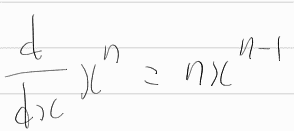 d/dx x^n = nx^{n-1}